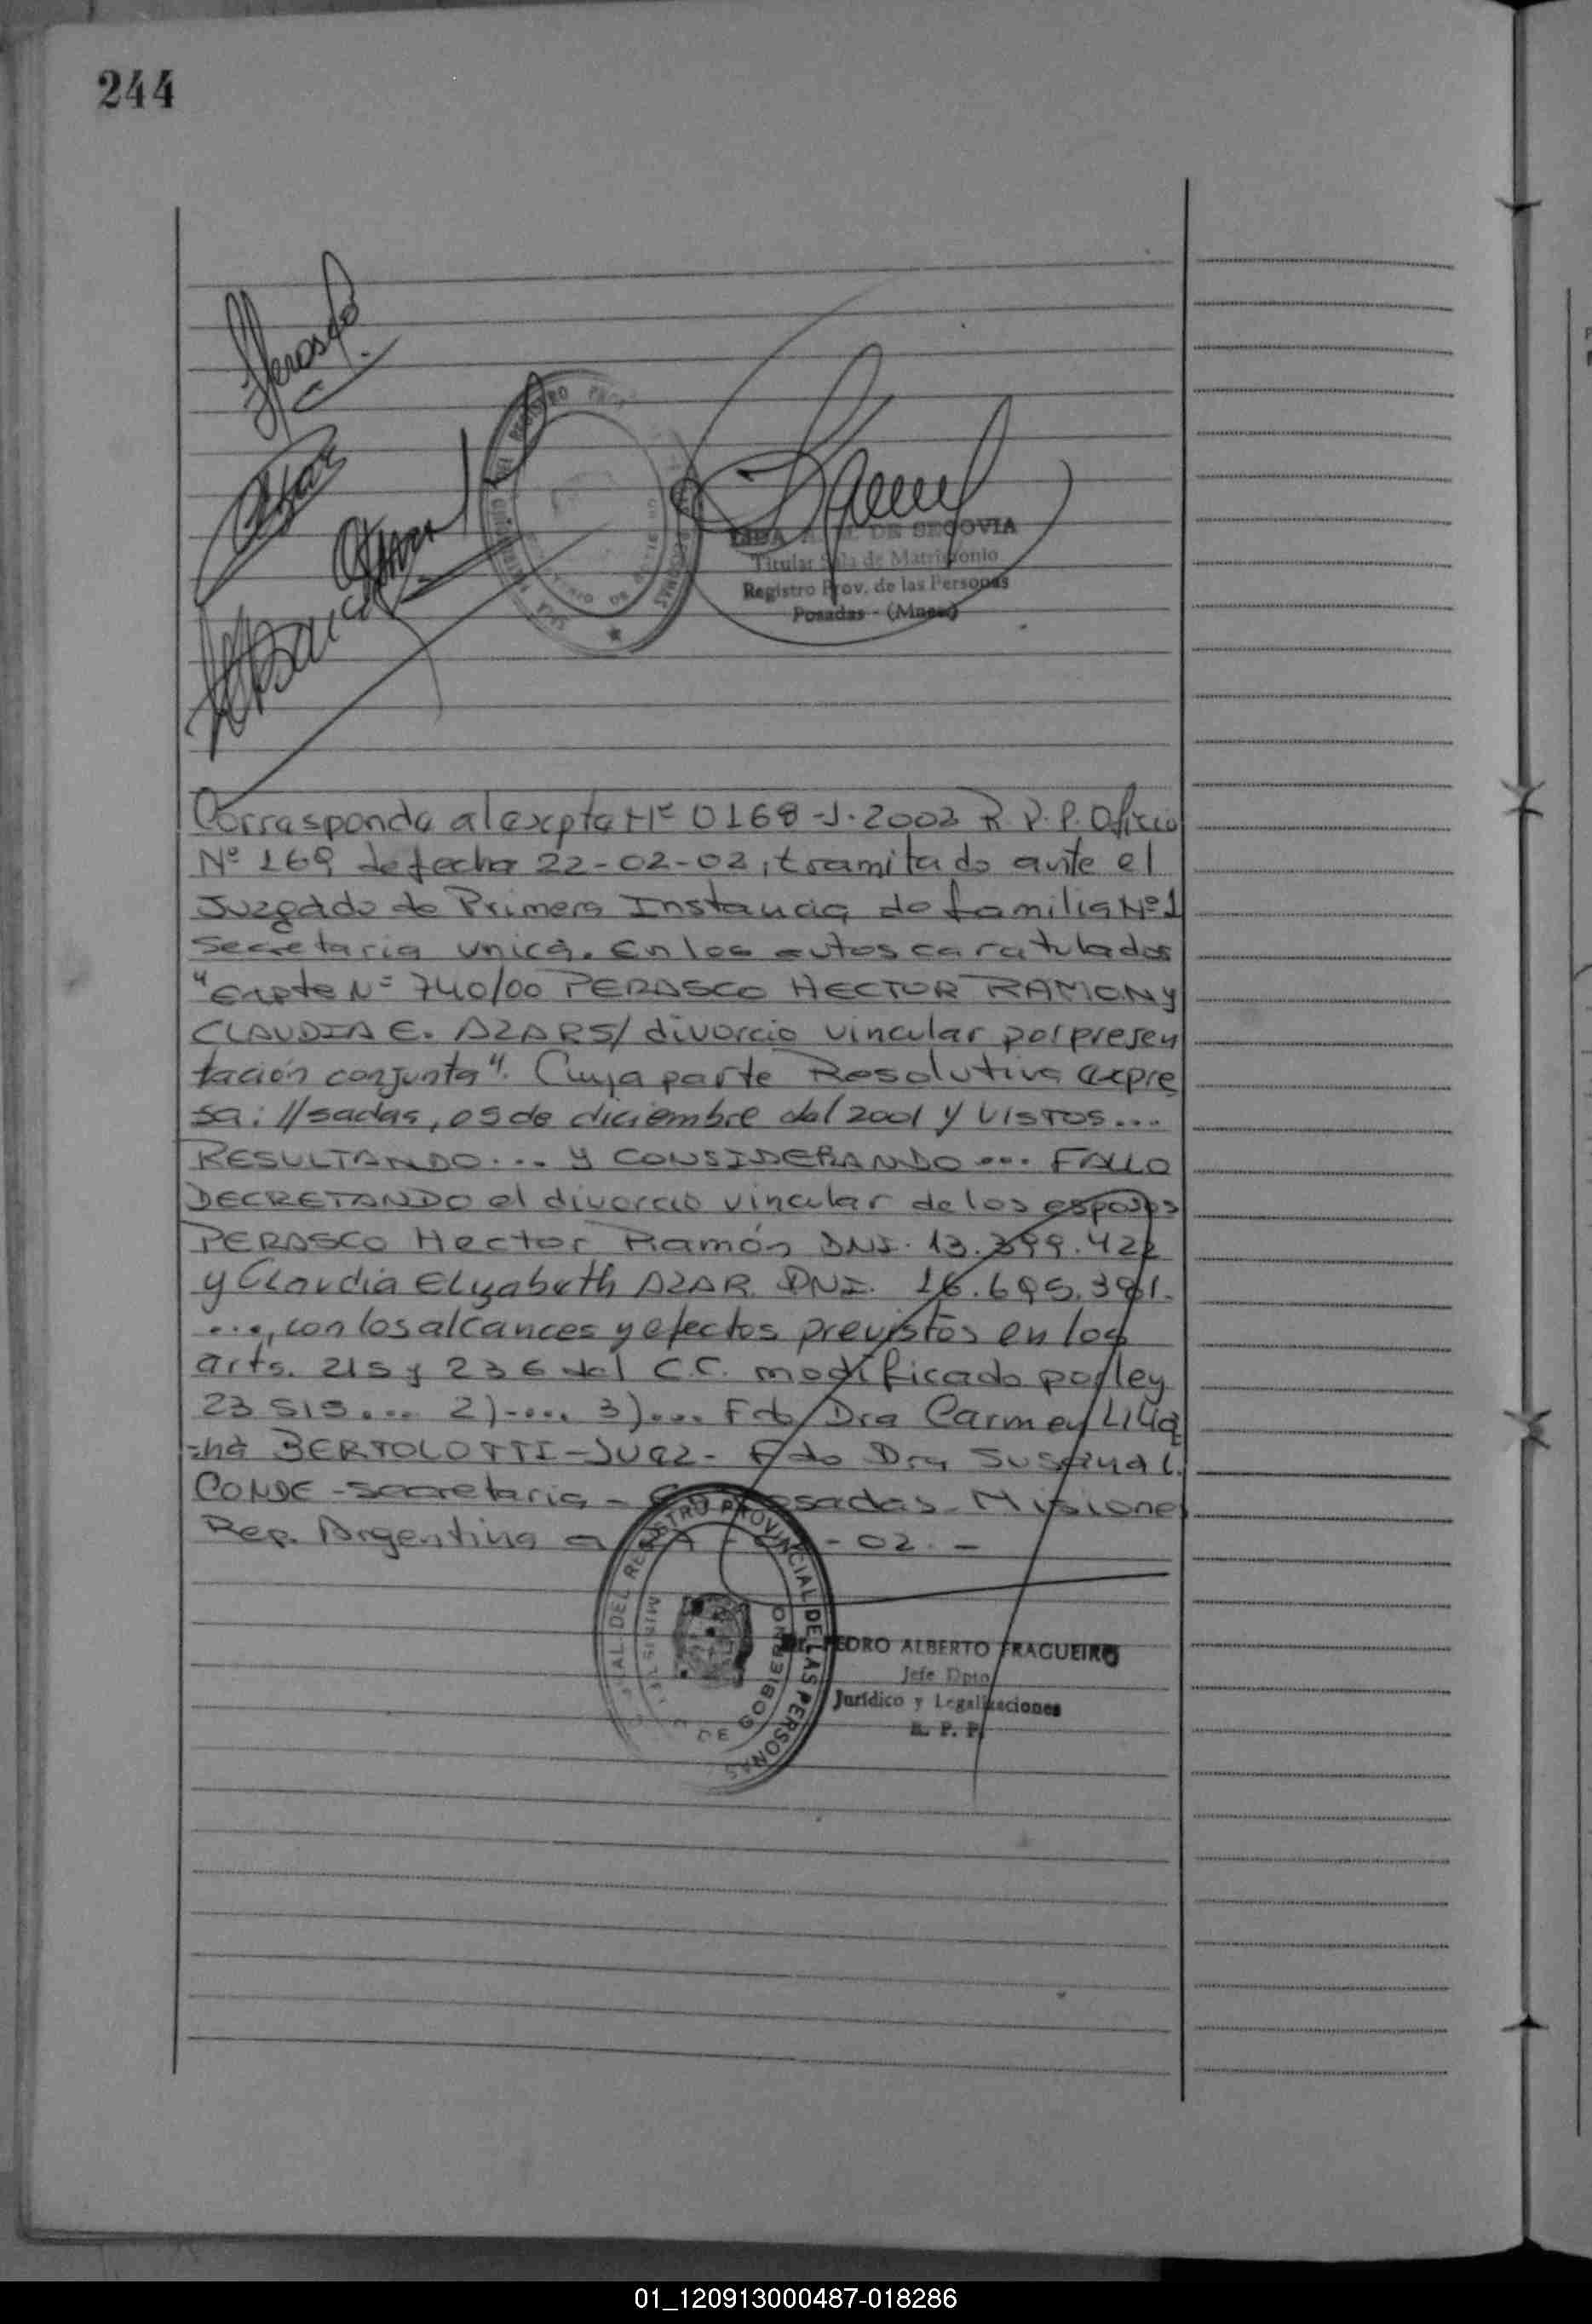 244
Perasco
Azar
DE SEGOVIA
Titular Sala de Matrimonio
Registro Prov. de las Personas
Posadas - (Mnes)
Corresponda al expte Nº 0168-J-2002 R.P.P. Oficio
Nº 169 de fecha 22-02-02, tramitado ante el
Juzgado de Primera Instancia de familia Nº 1
Secretaria unica. En los autos caratulados
"Expte Nº 740/00 PERASCO HECTOR RAMON y
CLAUDIA E. AZAR S/ divorcio vincular por presen
tación conjunta". Cuya parte Resolutiva expre
sa: //sadas, 05 de diciembre del 2001 Y VISTOS...
RESULTANDO... Y CONSIDERANDO... FALLO
DECRETANDO el divorcio vincular de los esposos
PERASCO Hector Ramón DNI. 13.399.422
y Claudia Elizabeth AZAR. DNI. 16.695.391.
..., con los alcances y efectos previstos en los
arts. 215 y 236 del C.C. modificado por ley
23515... 2).... 3)... Fdo Dra Carmen Lilia
=na BERTOLOTTI-JUEZ- Fdo Dra Susana L.
CONDE -secretaria- Posadas-Misiones
Rep. Argentina a - 02. -
REGISTRO PROVINCIAL DE LAS PERSONAS
DE GOBIERNO
Dr. PEDRO ALBERTO FRAGUEIRO
Jefe Dpto
Jurídico y Legalizaciones
R. P. P.
01_120913000487-018286